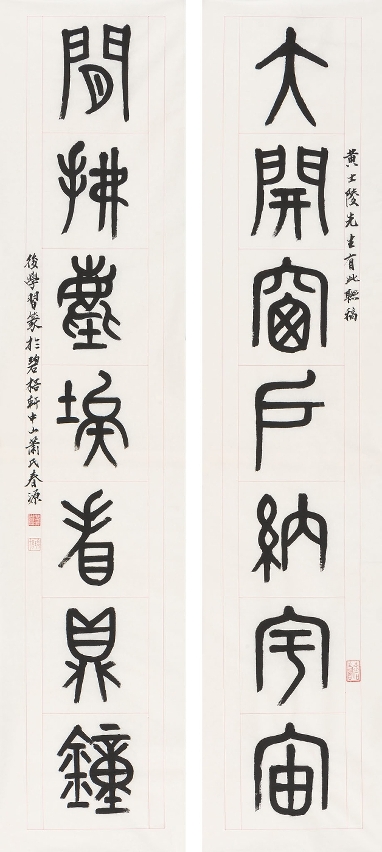 黃士陵先生有此聯稿
大開窗戶納宇宙
閒拂塵埃看鼎鐘
後學習篆於碧梧軒中山蕭氏春源